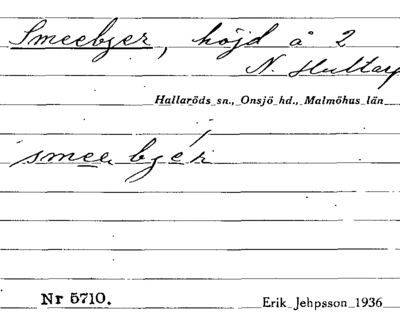 Smeebjer, höjd å 2
N. Hultarp
Hallaröds sn., Onsjö hd., Malmöhus län
smee bjér
Nr 5710.
Erik Jehpsson 1936